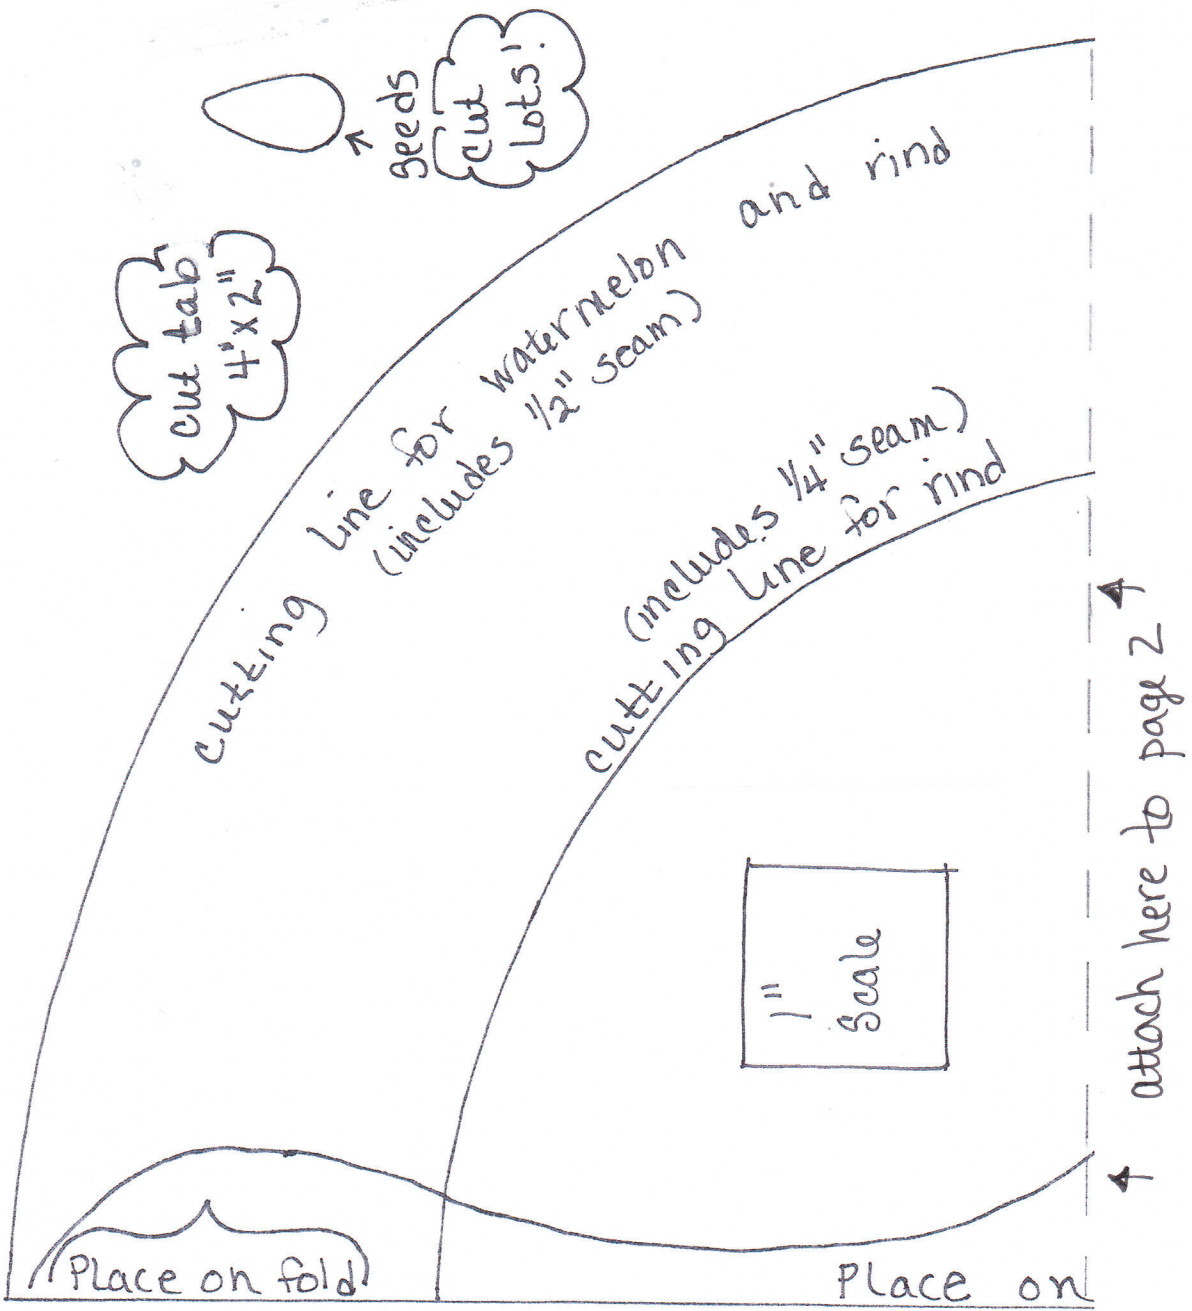 seeds
cut
Lots!
cut tab
4"x 2"
cutting line for watermelon and rind
(includes 1/2" seam)
(includes 1/4" seam)
cutting line for rind
1"
Scale
attach here to page 2
Place on fold
Place on